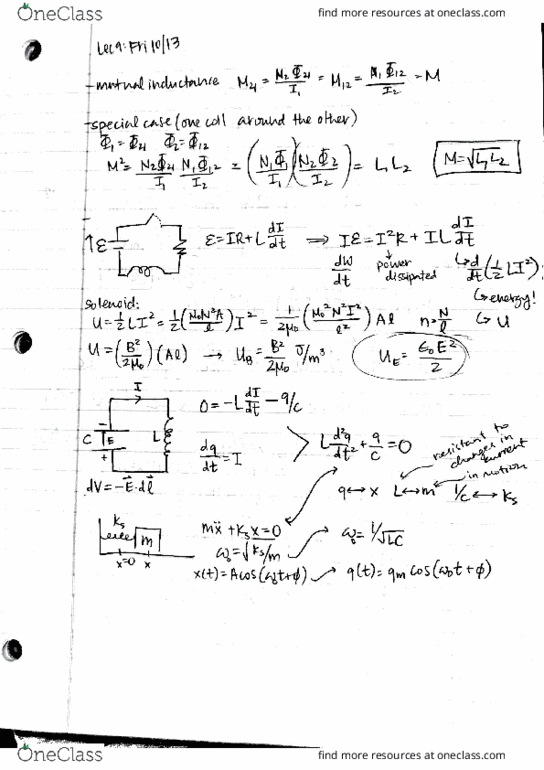 OneClass
find more resources at oneclass.com
Lec 9: Fri 10/13
-mutual inductance M₂₁ = N₂Φ₂₁/I₁ = M₁₂ = N₁Φ₁₂/I₂ = M
-special case (one coil around the other)
Φ₁ = Φ₂₁ Φ₂ = Φ₁₂
M² = N₂Φ₂₁/I₁ N₁Φ₁₂/I₂ = (N₁Φ₁/I₁)(N₂Φ₂/I₂) = L₁L₂ M = √L₁L₂
↑ε ε = IR + L dI/dt ⇒ Iε = I²R + IL dI/dt
dW/dt power dissipated ↳ d/dt(½LI²)
↳ energy!
↳ U
solenoid:
U = ½LI² = ½(μ₀N²A/l)I² = 1/2μ₀(μ₀²N²I²/l²)Al n = N/l
U = (B²/2μ₀)(Al) → U_B = B²/2μ₀ J/m³ U_E = ε₀E²/2
I
C - E + L
0 = -L dI/dt - q/c
dq/dt = I
> L d²q/dt² + q/c = 0
resistant to changes in current
in motion
q↔x L↔m 1/c↔kₛ
dV = -E⃗·dl⃗
kₛ m
x=0 x
mẍ + kₛx = 0
ω₀ = √kₛ/m → ω₀ = 1/√LC
x(t) = A cos(ω₀t+ϕ) → q(t) = qm cos(ω₀t + ϕ)
OneClass
find more resources at oneclass.com